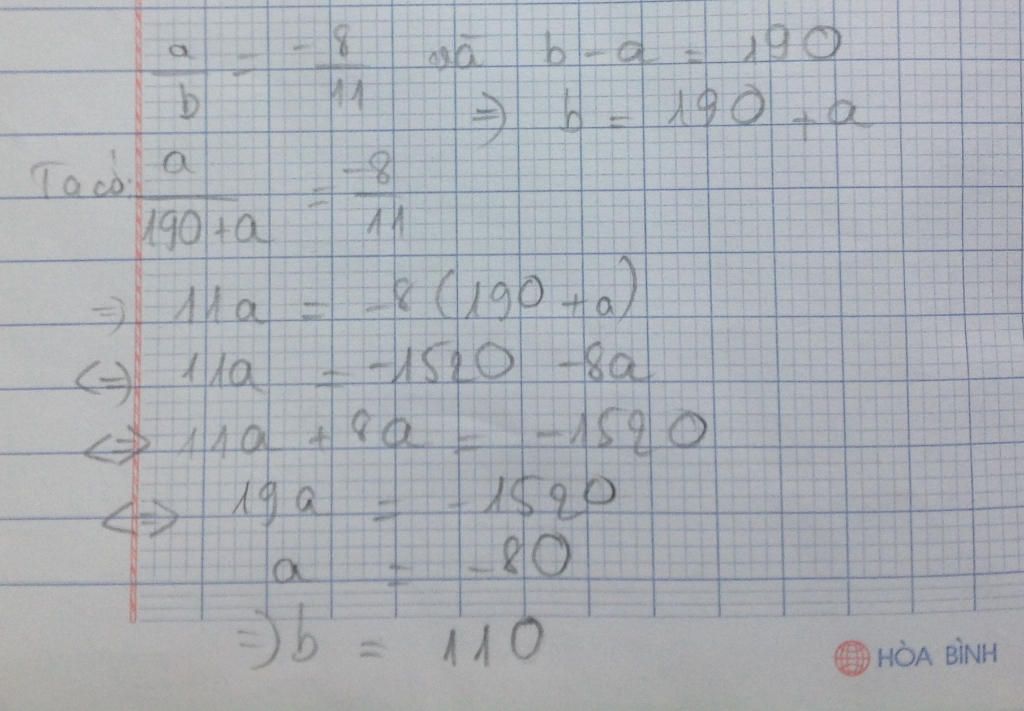 a/b = -8/11 và b - a = 190
=> b = 190 + a
Ta có: a/(190+a) = -8/11
=> 11a = -8(190+a)
<=> 11a = -1520 - 8a
<=> 11a + 8a = -1520
<=> 19a = -1520
a = -80
=> b = 110
HÒA BÌNH